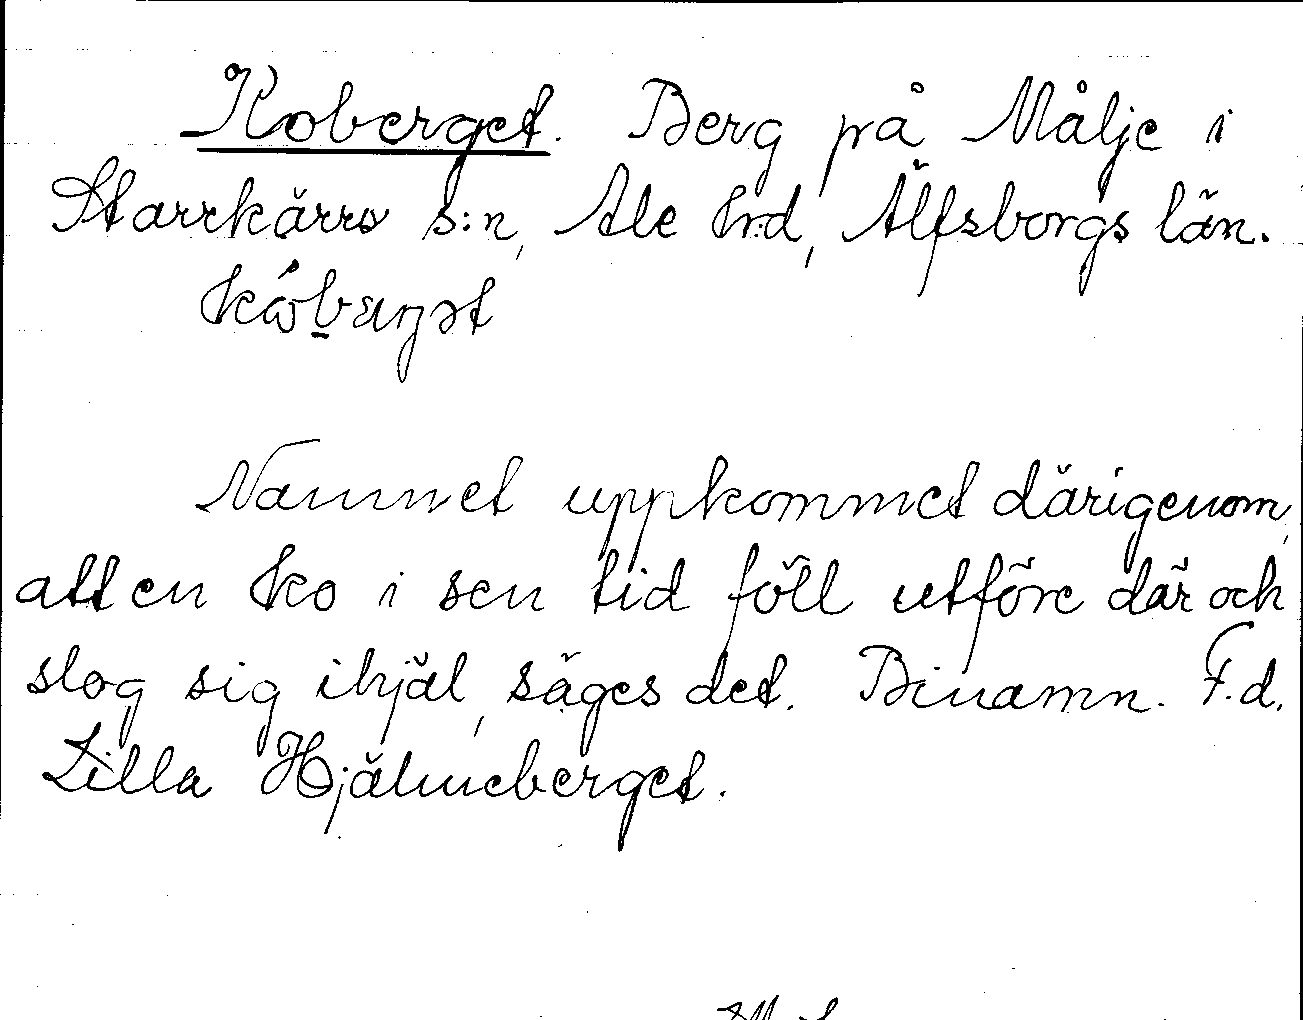 Koberget. Berg på Målje i
Starrkärrs s:n, Ale hrd, Älfsborgs län.
Namnet uppkommet därigenom,
att en ko i sen tid föll utföre där och
slog sig ihjäl, säges det. Binamn. F.d.
Lilla Hjälmeberget.